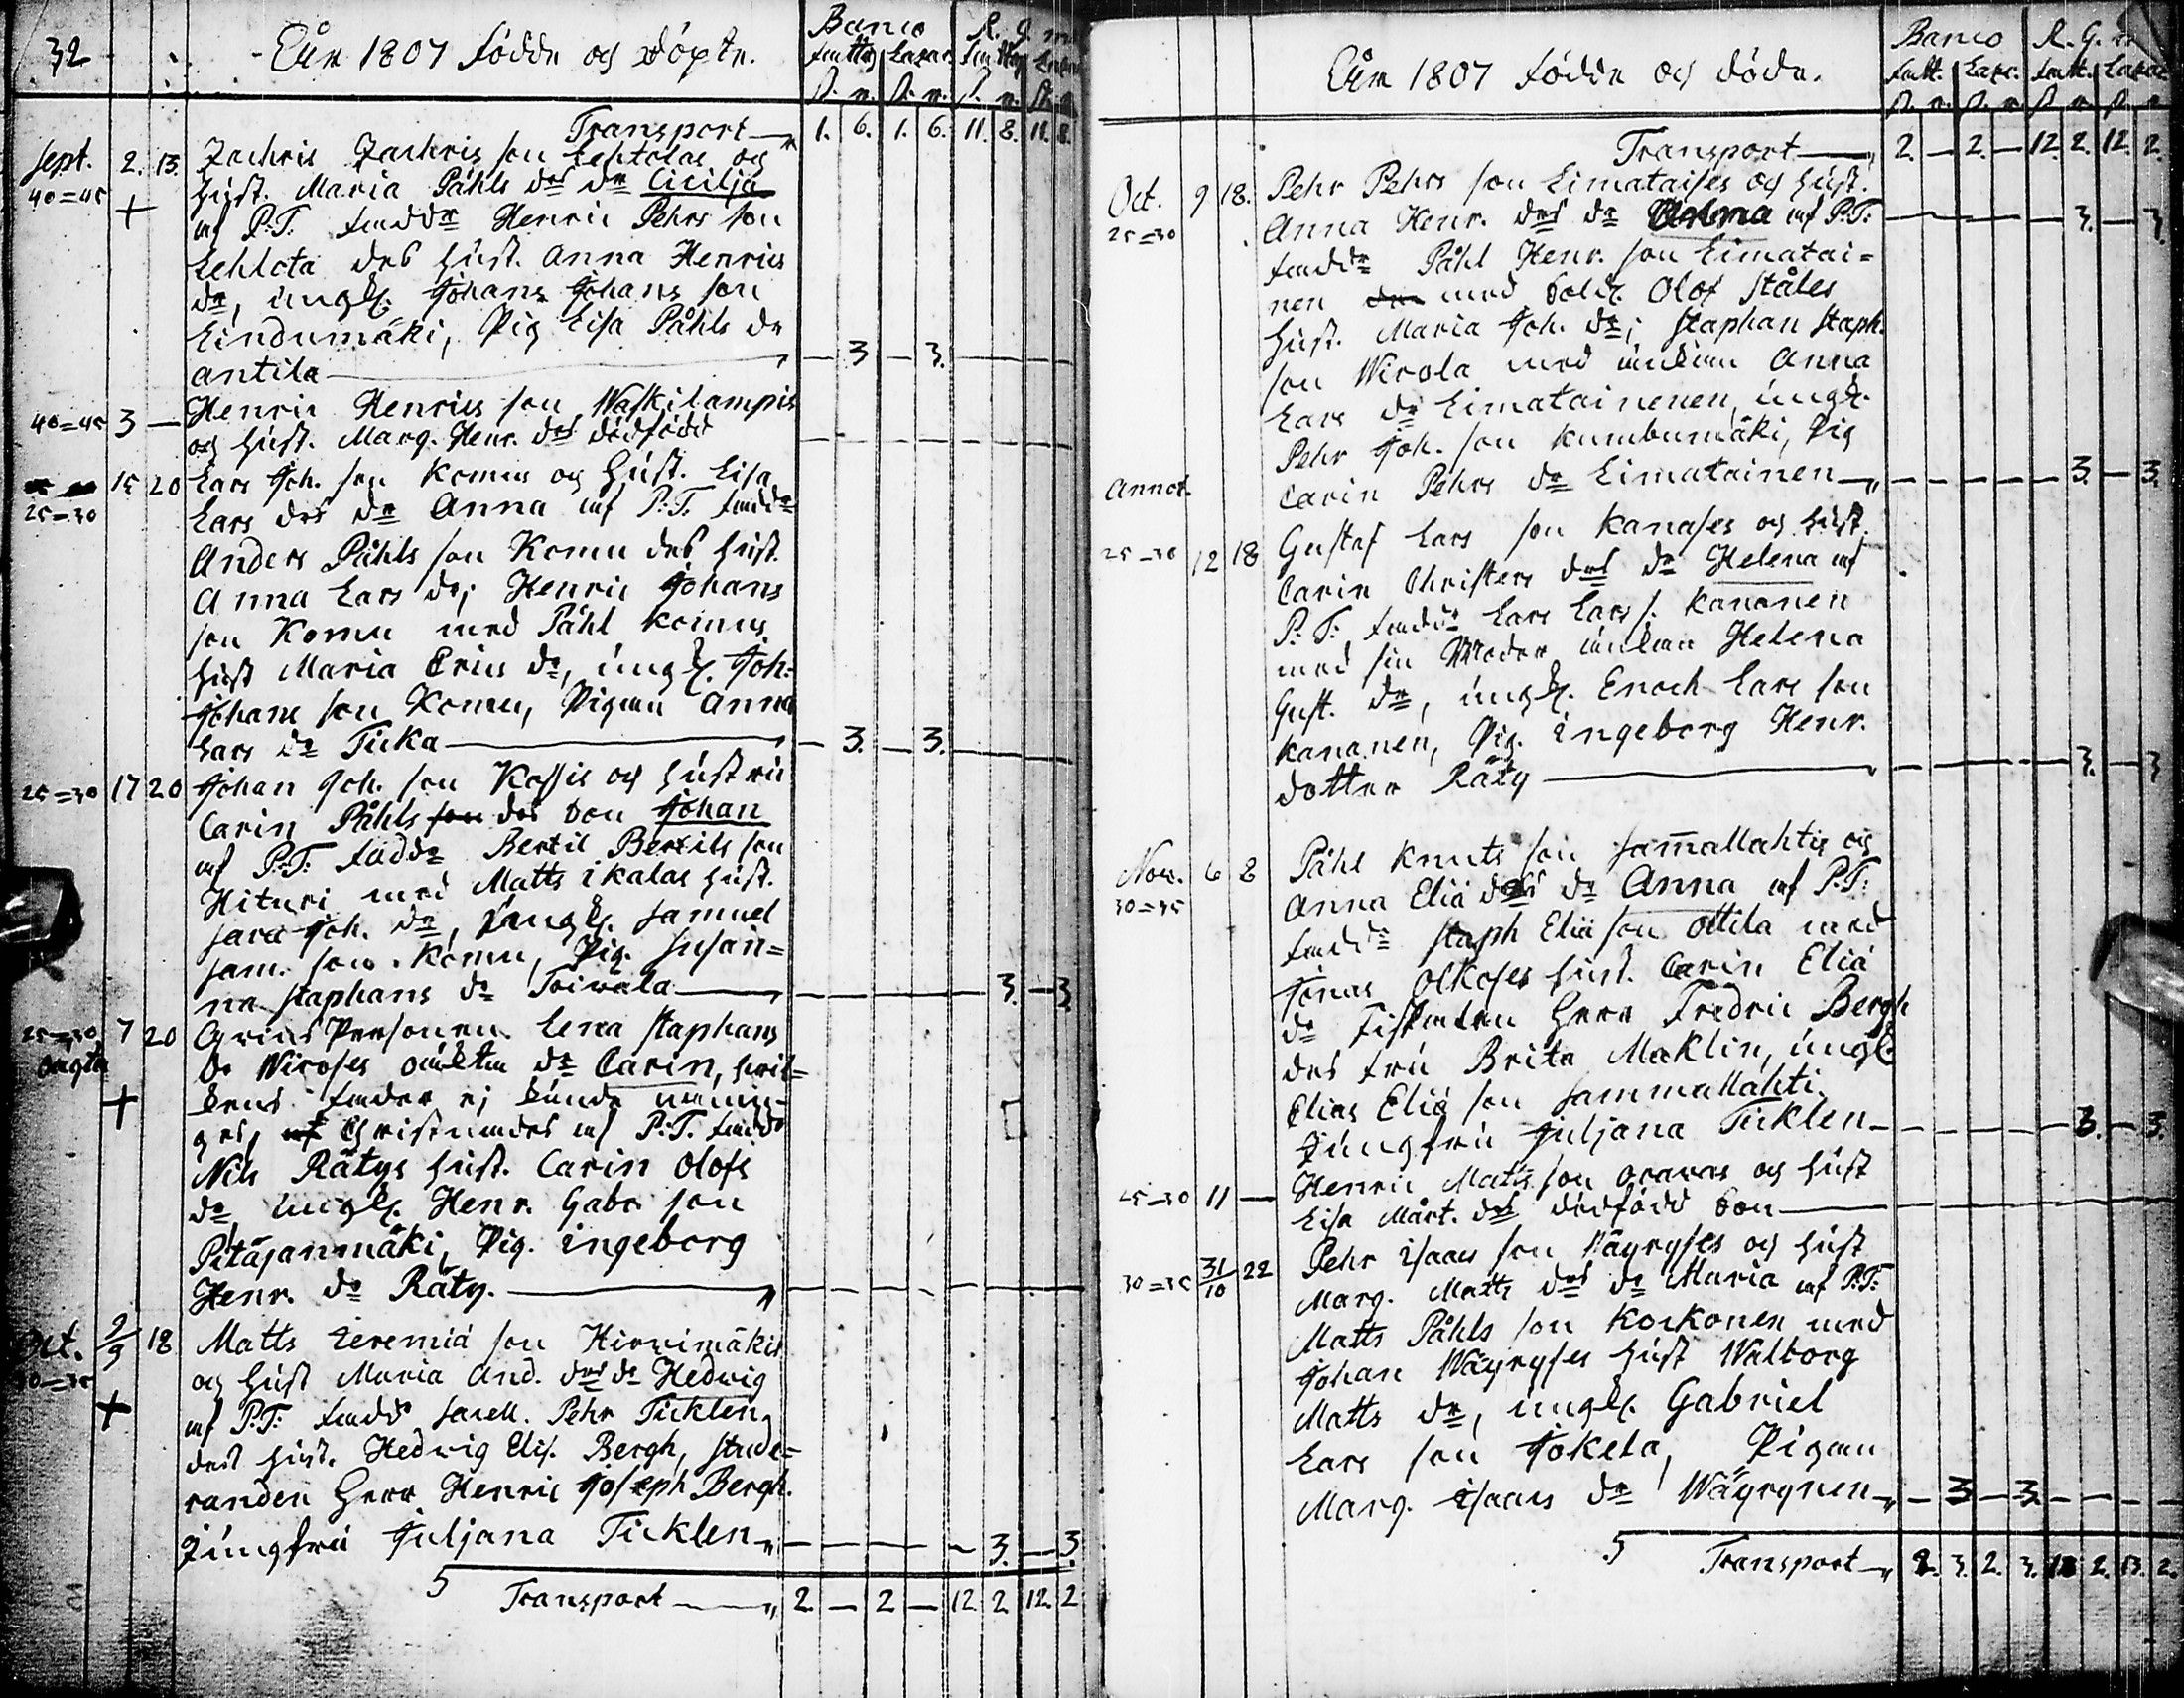 32
Åhr 1807 födde och döpte.
Banco R. G.
Fattig Lazar. Fattig
Transport 1. 6. 1. 6. 11. 8. 11. 8.
Sept. 2. 13. Zachris Zachris son Lehtolas och
40=45 hust. Maria Påhls des dr Cicilja
+ af P.T. fadd. Henric Pehrs son
Lehtola des hust. Anna Henrics
dr, ungk. Johans Johans son
Lindumäki, Pig Lisa Påhls dr
Antila — 3 — 3.
40=45 3 — Henric Henrics son Waskilampis
och hust. Marg. Henr. des dödfödd
15 20 Lars Joh. son Komus och hust. Lisa
25=30 Lars des dr Anna af P.T. fadd.
Anders Påhls son Komu des hust.
Anna Lars dr; Henric Johans
son Komu med Påhl Komus
hust Maria Erics dr, ungk. Joh:
Johans son Komu, Pigan Anna
Lars dr Ticka — 3. — 3.
25=30 17 20 Johan Joh. son Kossis och hustru
Carin Påhls son des son Johan
af P.T. fadd. Bertil Bertils son
Hituri med Matts Ikalas hust.
Sara Joh. dr, ungk. Samuel
Sam. son Komu, Pig. Susan=
na Staphans dr Toiwola 3. — 3.
25=30 7 20 Qvins Personen Lena Staphans
ogifta dr Wiroses oäkta dr Carin, hvil=
+ kens fader ej kunde
Christnades af P.T. fadd.
Nils Rätys hust. Carin Olofs
dr ungk. Henr. Gabr. son
Pitäjänmäki, Pig. Ingeborg
Henr. dr Räty.
Oct. 2/9 18 Matts Jeremiä son Hirvimäkis
30=35 och hust Maria And. des dr Hedvig
+ af P.T. fadd. Pehr Ticklen,
des hust. Hedvig Elis. Bergh, Stude=
randen Herr Henric Joseph Bergh.
Jungfru Juljana Ticklen 3. — 3.
5 Transport 2. — 2 — 12. 2 12. 2
Åhr 1807 födde och döde.
Banco R. G.
Fatt. Lazr. Fatt. Lazar
Transport 2. — 2. — 12. 2. 12. 2.
Oct. 9 18. Pehr Pehrs son Limataises och hust.
25=30 Anna Henr. des dr af P.T. 3. — 3.
fadd. Påhl Henr. son Limatai=
nen med Sold. Olof Ståles
hust. Maria Joh. dr; Staphan Staph.
son Wirola med änkan Anna
Lars dr Limatainenen, ungk.
Pehr Joh. son Kumbumäki, Pig
Annot. Carin Pehrs dr Limatainen 3. — 3.
25-30 12 18 Gustaf Lars son Kanases och hust.
Carin Christers des dr Helena af
P.T. fadd. Lars Lars s. Kananen
med sin Moder änkan Helena
Gust. dr, ungk. Enoch Lars son
Kananen, Pig. Ingeborg Henr.
dotter Räty 3. — 3
Nov. 6 8 Påhl Knuts son Sam̄allahtis och
30=35 Anna Eliä des dr Anna af P.T.
fadd. Staph Eliä son Ottila med
Jonas Olkoses hust. Carin Eliä
dr Herr Fredric Bergh
des fru Brita Moklin, ungk.
Elias Eliä son Sammallahti
Jungfru Juljana Ticklen 3. — 3.
25-30 11 — Henric Matts son Oravas och hust
Lisa Mårt. des dödfödd son
30=35 31/10 22 Pehr Isaacs son Wäyryses och hust
Marg. Matts des dr Maria af P.T.
Matts Påhls son Korkonen med
Johan Wäyryses hust Walborg
Matts dr, ungk. Gabriel
Lars son Jokela, Pigan
Marg. Isaacs dr Wäyrynen — 3 — 3.
5 Transport 2. 3. 2. 3. 2. 13. 2.